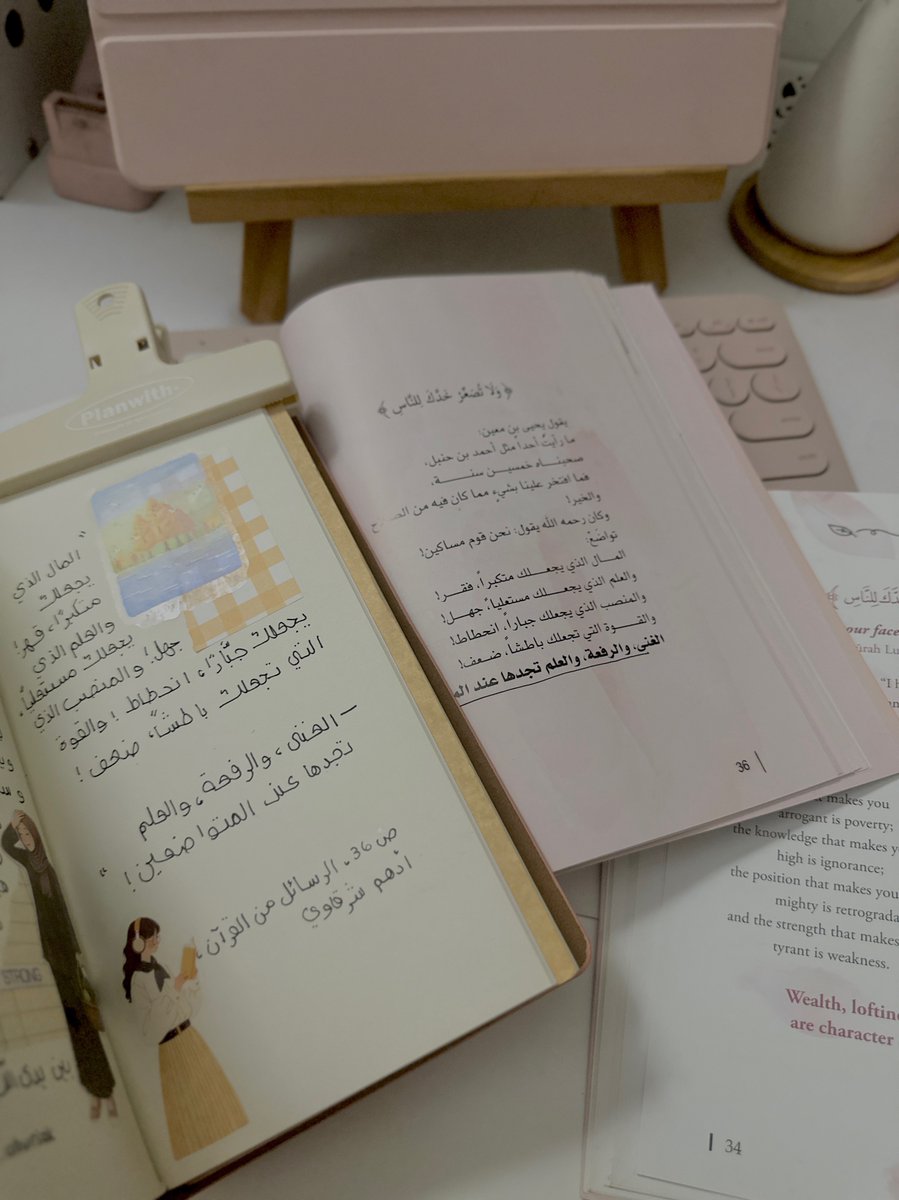 Planwith
"المال الذي
يجعلك
متكبرًا، فهرا
والعلم الذي
يجعلك مستعليًا،
جهل! والمنصب الذي
يجعلك جبَّارًا، انحطاط! والقوة
التي تجعلك باطشاً، ضعف!
- الغنى، والرفعة، والعلم
تجدها عند المتواضعين! "
ص 36، الرسائل من القرآن،
أدهم شرقاوي
STRONG
﴿ وَلَا تُصَعِّرْ خَدَّكَ لِلنَّاسِ ﴾
يقول يحيى بن معين:
ما رأيتُ أحداً مثل أحمد بن حنبل،
صحبناه خمسين سنة،
فما افتخر علينا بشيءٍ مما كان فيه من
والخير!
وكان رحمه الله يقول: نحن قوم مساكين!
تواضَعْ:
المال الذي يجعلك متكبراً، فقر!
والعلم الذي يجعلك مستعلياً، جهل!
والمنصب الذي يجعلك جباراً، انحطاط!
والقوة التي تجعلك باطشاً، ضعف!
الغنى، والرفعة، والعلم تجدها عند
36
لِلنَّاسِ ﴾
our face
ūrah Lu
"I h
makes you
arrogant is poverty;
the knowledge that makes y
high is ignorance;
the position that makes you
mighty is retrograda
and the strength that makes
tyrant is weakness.
Wealth, loftine
are character
34